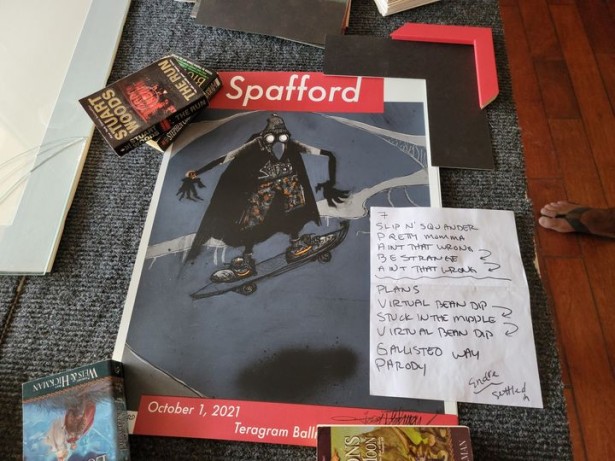 Spafford
STUART
WOODS
THE RUN
THE RUN
7
SLIP N' SQUANDER
PRETTY MOMMA
AINT THAT WRONG
BE STRANGE
AINT THAT WRONG
PLANS
VIRTUAL BEAN DIP
STUCK IN THE MIDDLE
VIRTUAL BEAN DIP
GALLISTED WAY
PARODY
WEIS & HICKMAN
October 1, 2021
Teragram Ball